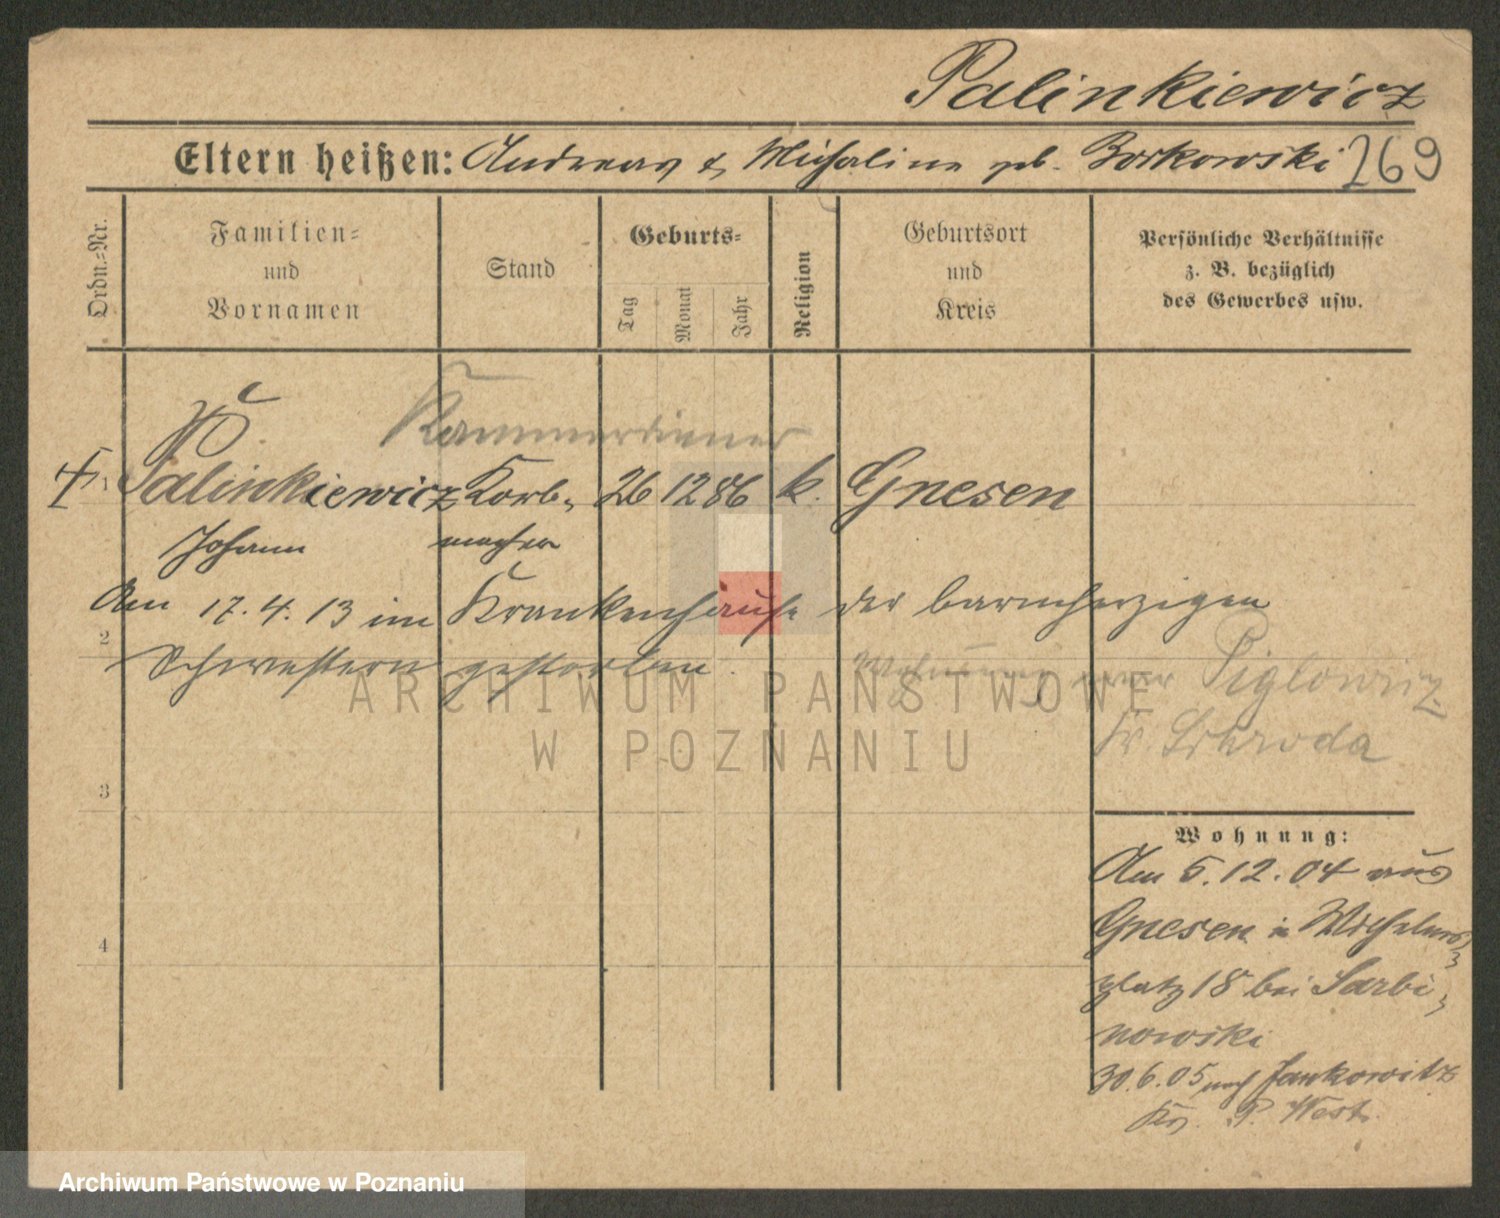 Palinkiewicz
Eltern heißen: Andreas & Michaline geb. Borkowski 269
Ordn.-Nr.
Familien-
und
Vornamen
Stand
Geburts-
Tag
Monat
Jahr
Religion
Geburtsort
und
Kreis
Persönliche Verhältnisse
z. B. bezüglich
des Gewerbes usw.
Kammerdiener
1 Palinkiewicz Korb- 26 12 86 k. Gnesen
Johann macher
Am 17.4.13 im Krankenhause der barmherzigen
2
Schwestern gestorben.
Wohnung Piglowicz
Kr. Schroda
3
Wohnung:
Am 5.12.04 aus
Gnesen in Wilhelms-
4
platz 18 bei Sarbi-
nowski
30.6.05 nach Jankowitz
Kr. P. West.
ARCHIWUM PAŃSTWOWE
W POZNANIU
Archiwum Państwowe w Poznaniu